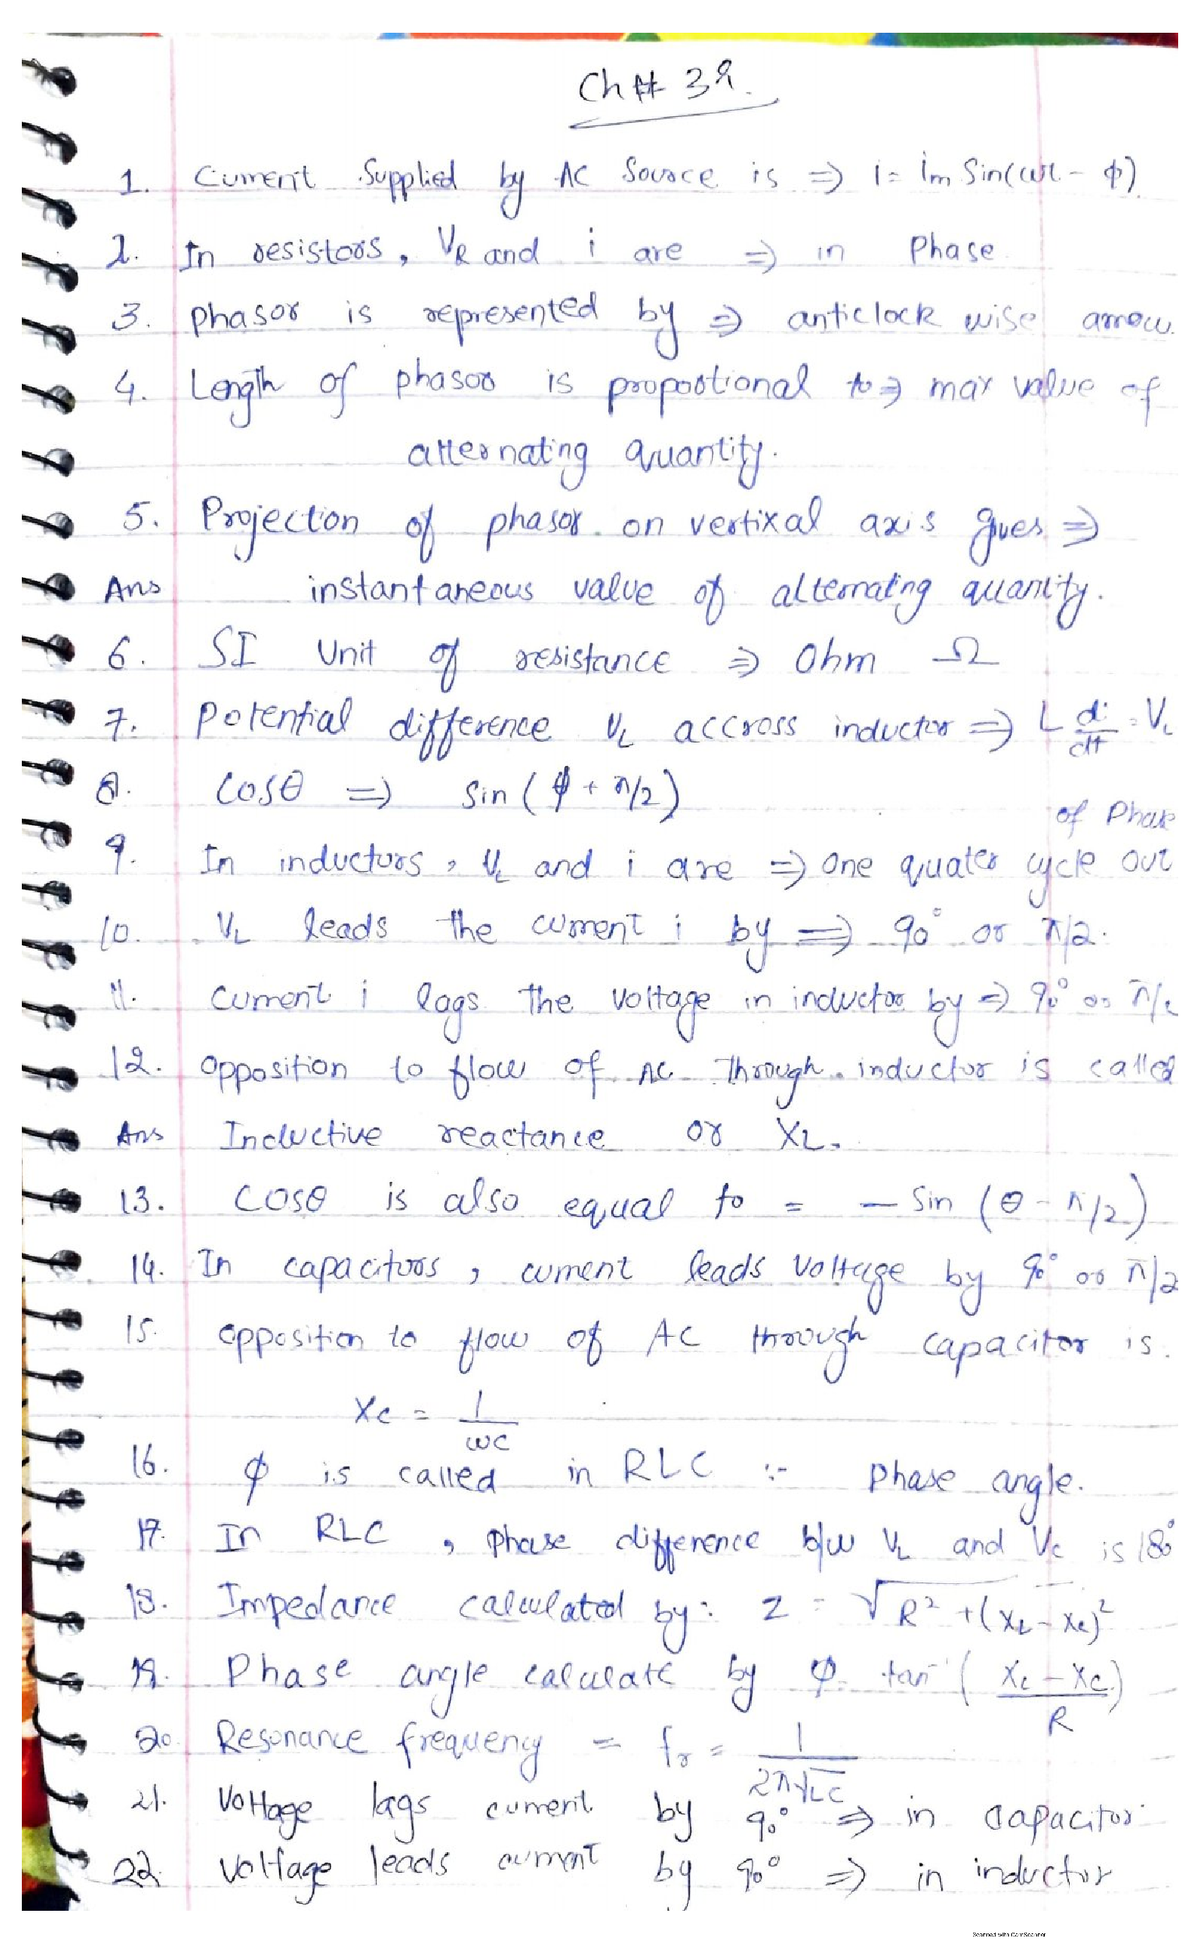 Ch # 39.
1. Current Supplied by AC Source is ⇒ i = im Sin(ωt - φ)
2. In resistors, VR and i are ⇒ in Phase
3. phasor is represented by ⇒ anticlock wise arrow.
4. Length of phasor is propostional to ⇒ max value of
alternating quantity.
5. Projection of phasor on vertixal axis gives ⇒
Ans instantaneous value of alternating quantity.
6. SI Unit of resistance ⇒ Ohm Ω
7. Potential difference VL accross inductor ⇒ L di/dt = VL
8. Cosθ ⇒ Sin (φ + π/2)
of Phase
9. In inductors, VL and i are ⇒ one quater cycle out
10. VL leads the current i by ⇒ 90° or π/2.
11. Current i lags the voltage in inductor by ⇒ 90° or π/2
12. Opposition to flow of AC Through inductor is called
Ans Inductive reactance or XL.
13. Cosθ is also equal to = - Sin (θ - π/2)
14. In capacitors, current leads voltage by 90° or π/2
15. Opposition to flow of AC through capacitor is.
Xc = 1/ωC
16. φ is called in RLC :- Phase angle.
17. In RLC, phase difference b/w VL and Vc is 180°
18. Impedance calculated by: Z = √R² + (XL - Xc)²
19. Phase angle calculate by φ = tan⁻¹ (XL - Xc / R)
20. Resonance frequency = fr = 1/2π√LC
21. Voltage lags current by 90° ⇒ in capacitor
22. Voltage leads current by 90° ⇒ in inductor
Scanned with CamScanner